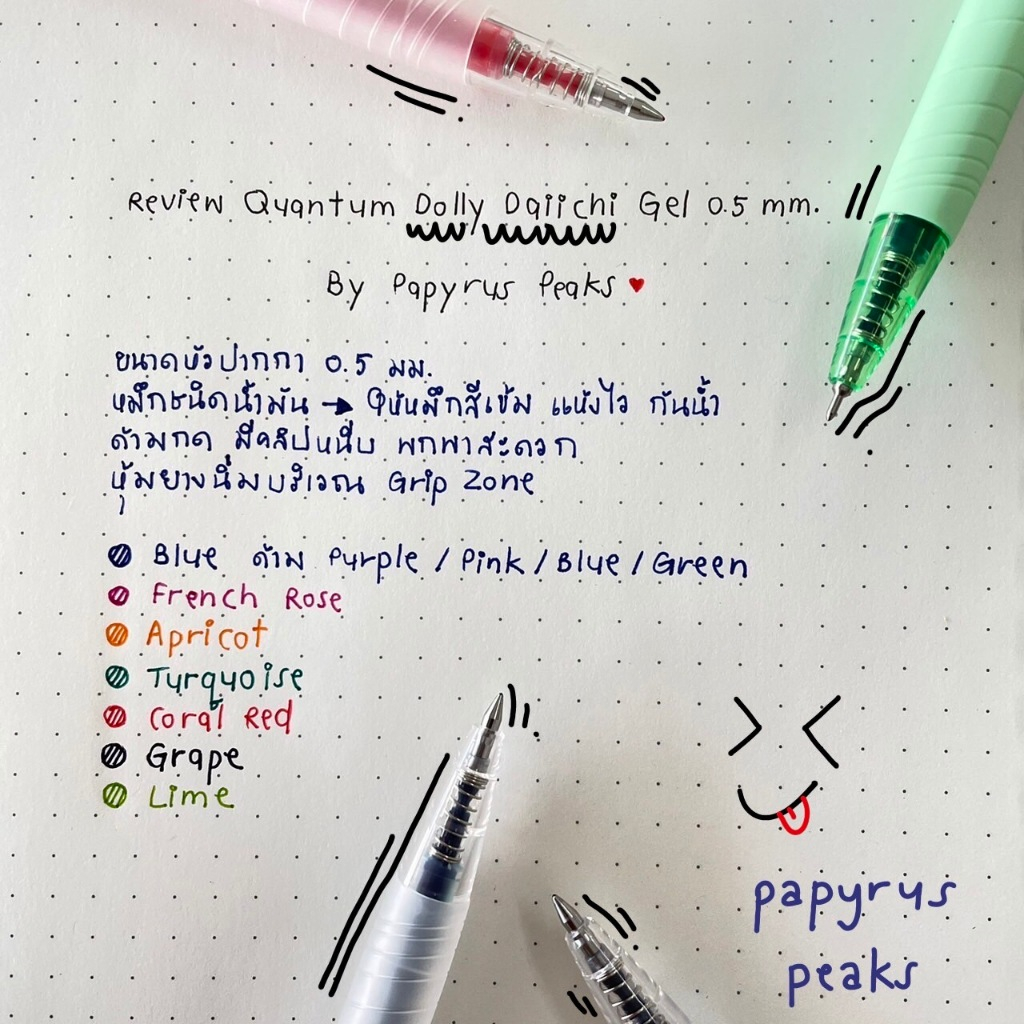 Review Quantum Dolly Daiichi Gel 0.5 mm.
By Papyrus Peaks ♥
ขนาดหัวปากกา 0.5 มม.
หมึกชนิดน้ำมัน → ให้หมึกสีเข้ม แห้งไว กันน้ำ
ด้ามกด มีคลิปหนีบ พกพาสะดวก
หุ้มยางนิ่มบริเวณ Grip Zone
Blue ด้าม Purple / Pink / Blue / Green
French Rose
Apricot
Turquoise
Coral Red
Grape
Lime
papyrus
peaks